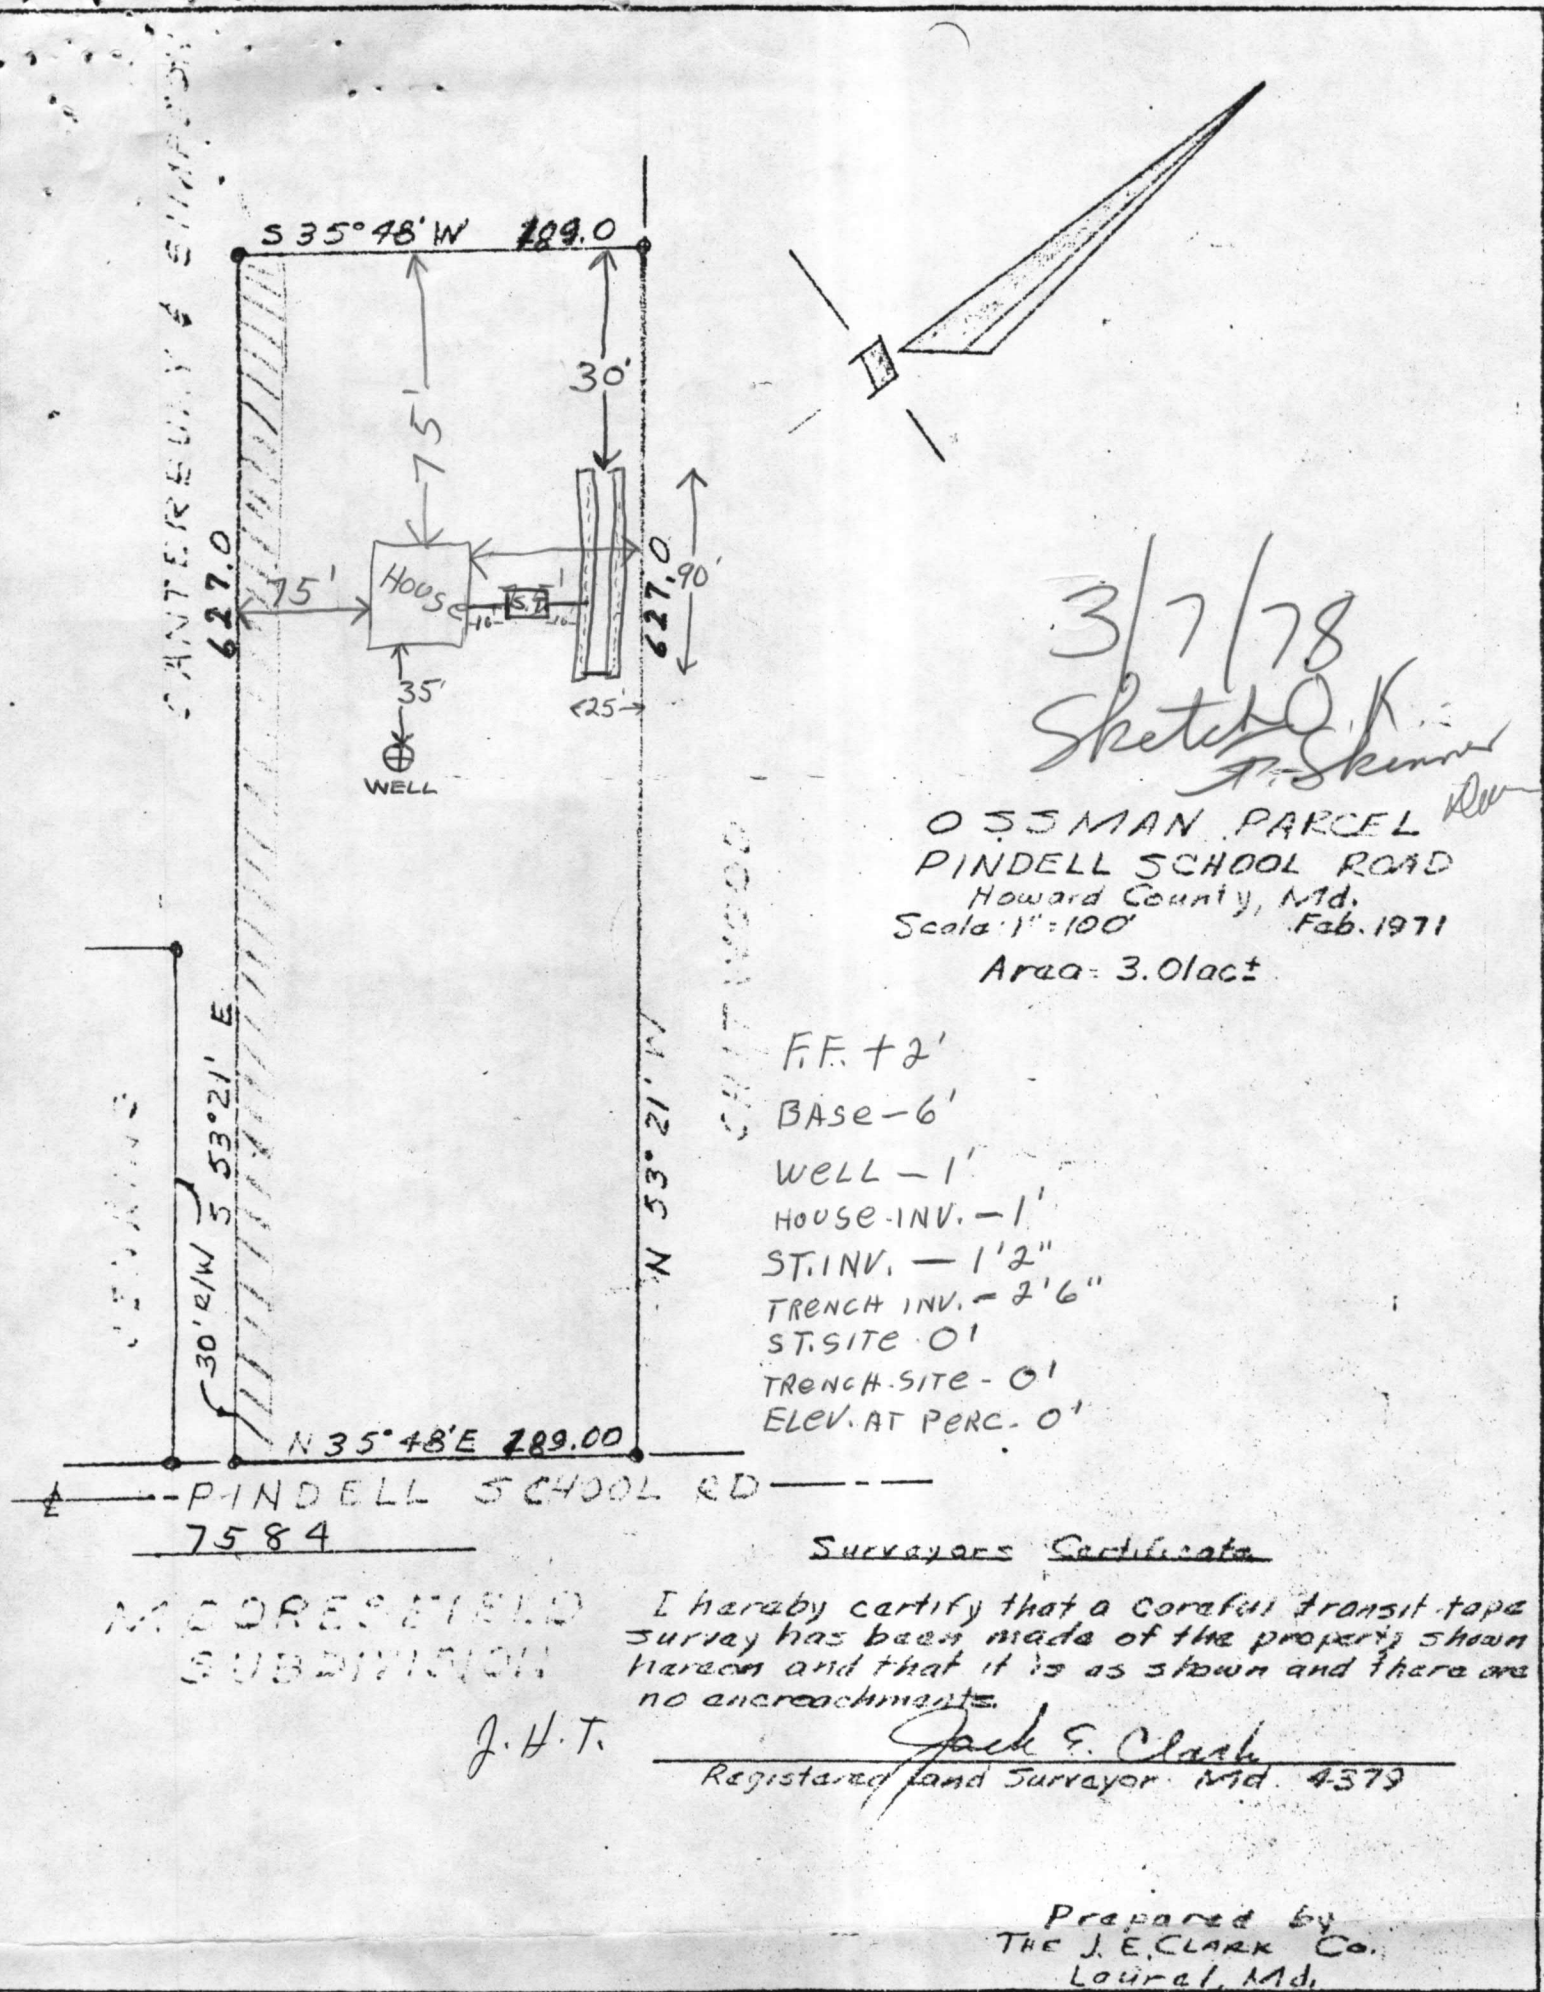 S 35° 48' W 289.0
30'
75'
CANTERBURY & SIMPSON
627.0
75'
House
10'
S.T.
10'
627.0
90'
<25'→
35'
WELL
3/7/78
Sketch O.K.
F. Skinner
OSSMAN PARCEL
PINDELL SCHOOL ROAD
Howard County, Md.
Scale: 1" = 100' Feb. 1971
Area = 3.01ac±
F.F. + 2'
BASe - 6'
WeLL - 1'
HOUSe INV. - 1'
ST. INV. - 1'2"
TReNCH INV. - 2'6"
ST. SITe 0'
TReNCH SITe - 0'
ELeV. AT PeRC. 0'
S 53° 21' E
30' R/W
N 53° 21' W
N 35° 48' E 289.00
PINDELL SCHOOL RD
7584
MOORESFIELD
SUBDIVISION
J.H.T.
Surveyors Certificate
I hereby certify that a careful transit-tape
survey has been made of the property shown
hereon and that it is as shown and there are
no encroachments.
Jack E. Clark
Registered Land Surveyor Md. 4379
Prepared by
THE J. E. CLARK Co.
Laurel, Md.